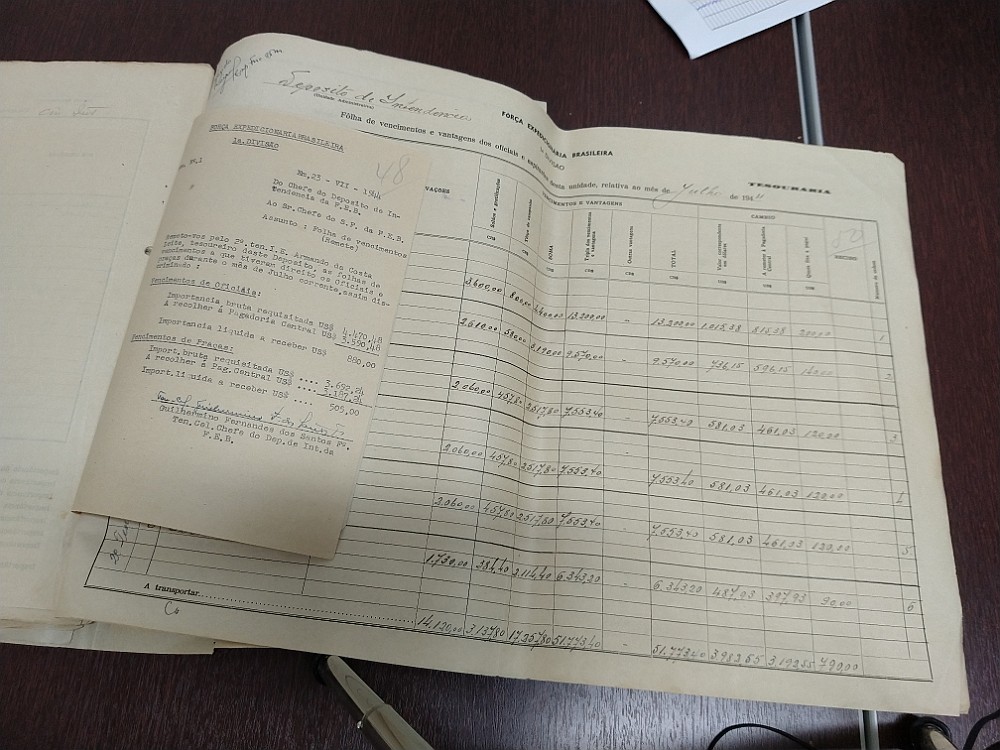 48
FORÇA EXPEDICIONARIA BRASILEIRA
1a. DIVISÃO
Nº.1
Em, 23 - VII - 1944
Do Chefe do Deposito de In-
tendencia da F.E.B.
Ao Sr. Chefe do S.F. da F.E.B.
Assunto : Folha de vencimentos
(Remete)
Remeto-vos pelo 2º. ten. I.E. Armando da Costa
tesoureiro deste Deposito, as folhas de
vencimentos a que tiveram direito os Oficiais e
praças durante o mês de Julho corrente, assim dis-
criminado :
Vencimentos de Oficiais:
Importancia bruta requisitada US$ 4.470,48
A recolher á Pagadoria Central US$ 3.590,48
Importancia liquida a receber US$ 880,00
Vencimentos de Praças:
Import. bruta requisitada US$ .... 3.692,24
A recolher á Pag. Central US$ .... 3.187,24
Import. liquida a receber US$ .... 505,00
Guilhermino Fernandes dos Santos Fº.
Ten. Cel. Chefe do Dep. de Int. da
F.E.B.
Deposito de Intendencia
(Unidade Administrativa)
FORÇA EXPEDICIONÁRIA BRASILEIRA
1ª DIVISÃO
TESOURARIA
Fôlha de vencimentos e vantagens dos oficiais e aspirantes desta unidade, relativa ao mês de Julho de 1944
VENCIMENTOS E VANTAGENS
CAMBIO
50
Soldos e gratificações
SOMA
Total dos vencimentos e vantagens
Outras vantagens
TOTAL
Valor correspondente em dólares
A remeter à Pagadoria Central
Quantia líq. a pagar
RECIBO
Número de ordem
CR$ CR$ CR$ CR$ CR$ CR$
3.600,00 800,00 4.400,00 13.200,00 13.200,00 1.015,38 815,38 200,00 1
2.610,00 580,00 3.190,00 9.570,00 9.570,00 736,15 596,15 140,00 2
2.060,00 457,80 2.517,80 7.553,40 7.553,40 581,03 461,03 120,00 3
2.060,00 457,80 2.517,80 7.553,40 7.553,40 581,03 461,03 120,00 4
2.060,00 457,80 2.517,80 7.553,40 7.553,40 581,03 461,03 120,00 5
1.730,00 384,40 2.114,40 6.343,20 6.343,20 487,93 397,93 90,00 6
A transportar
14.120,00 3.137,80 17.257,80 51.773,40 51.773,40 3.982,55 3.192,55 790,00